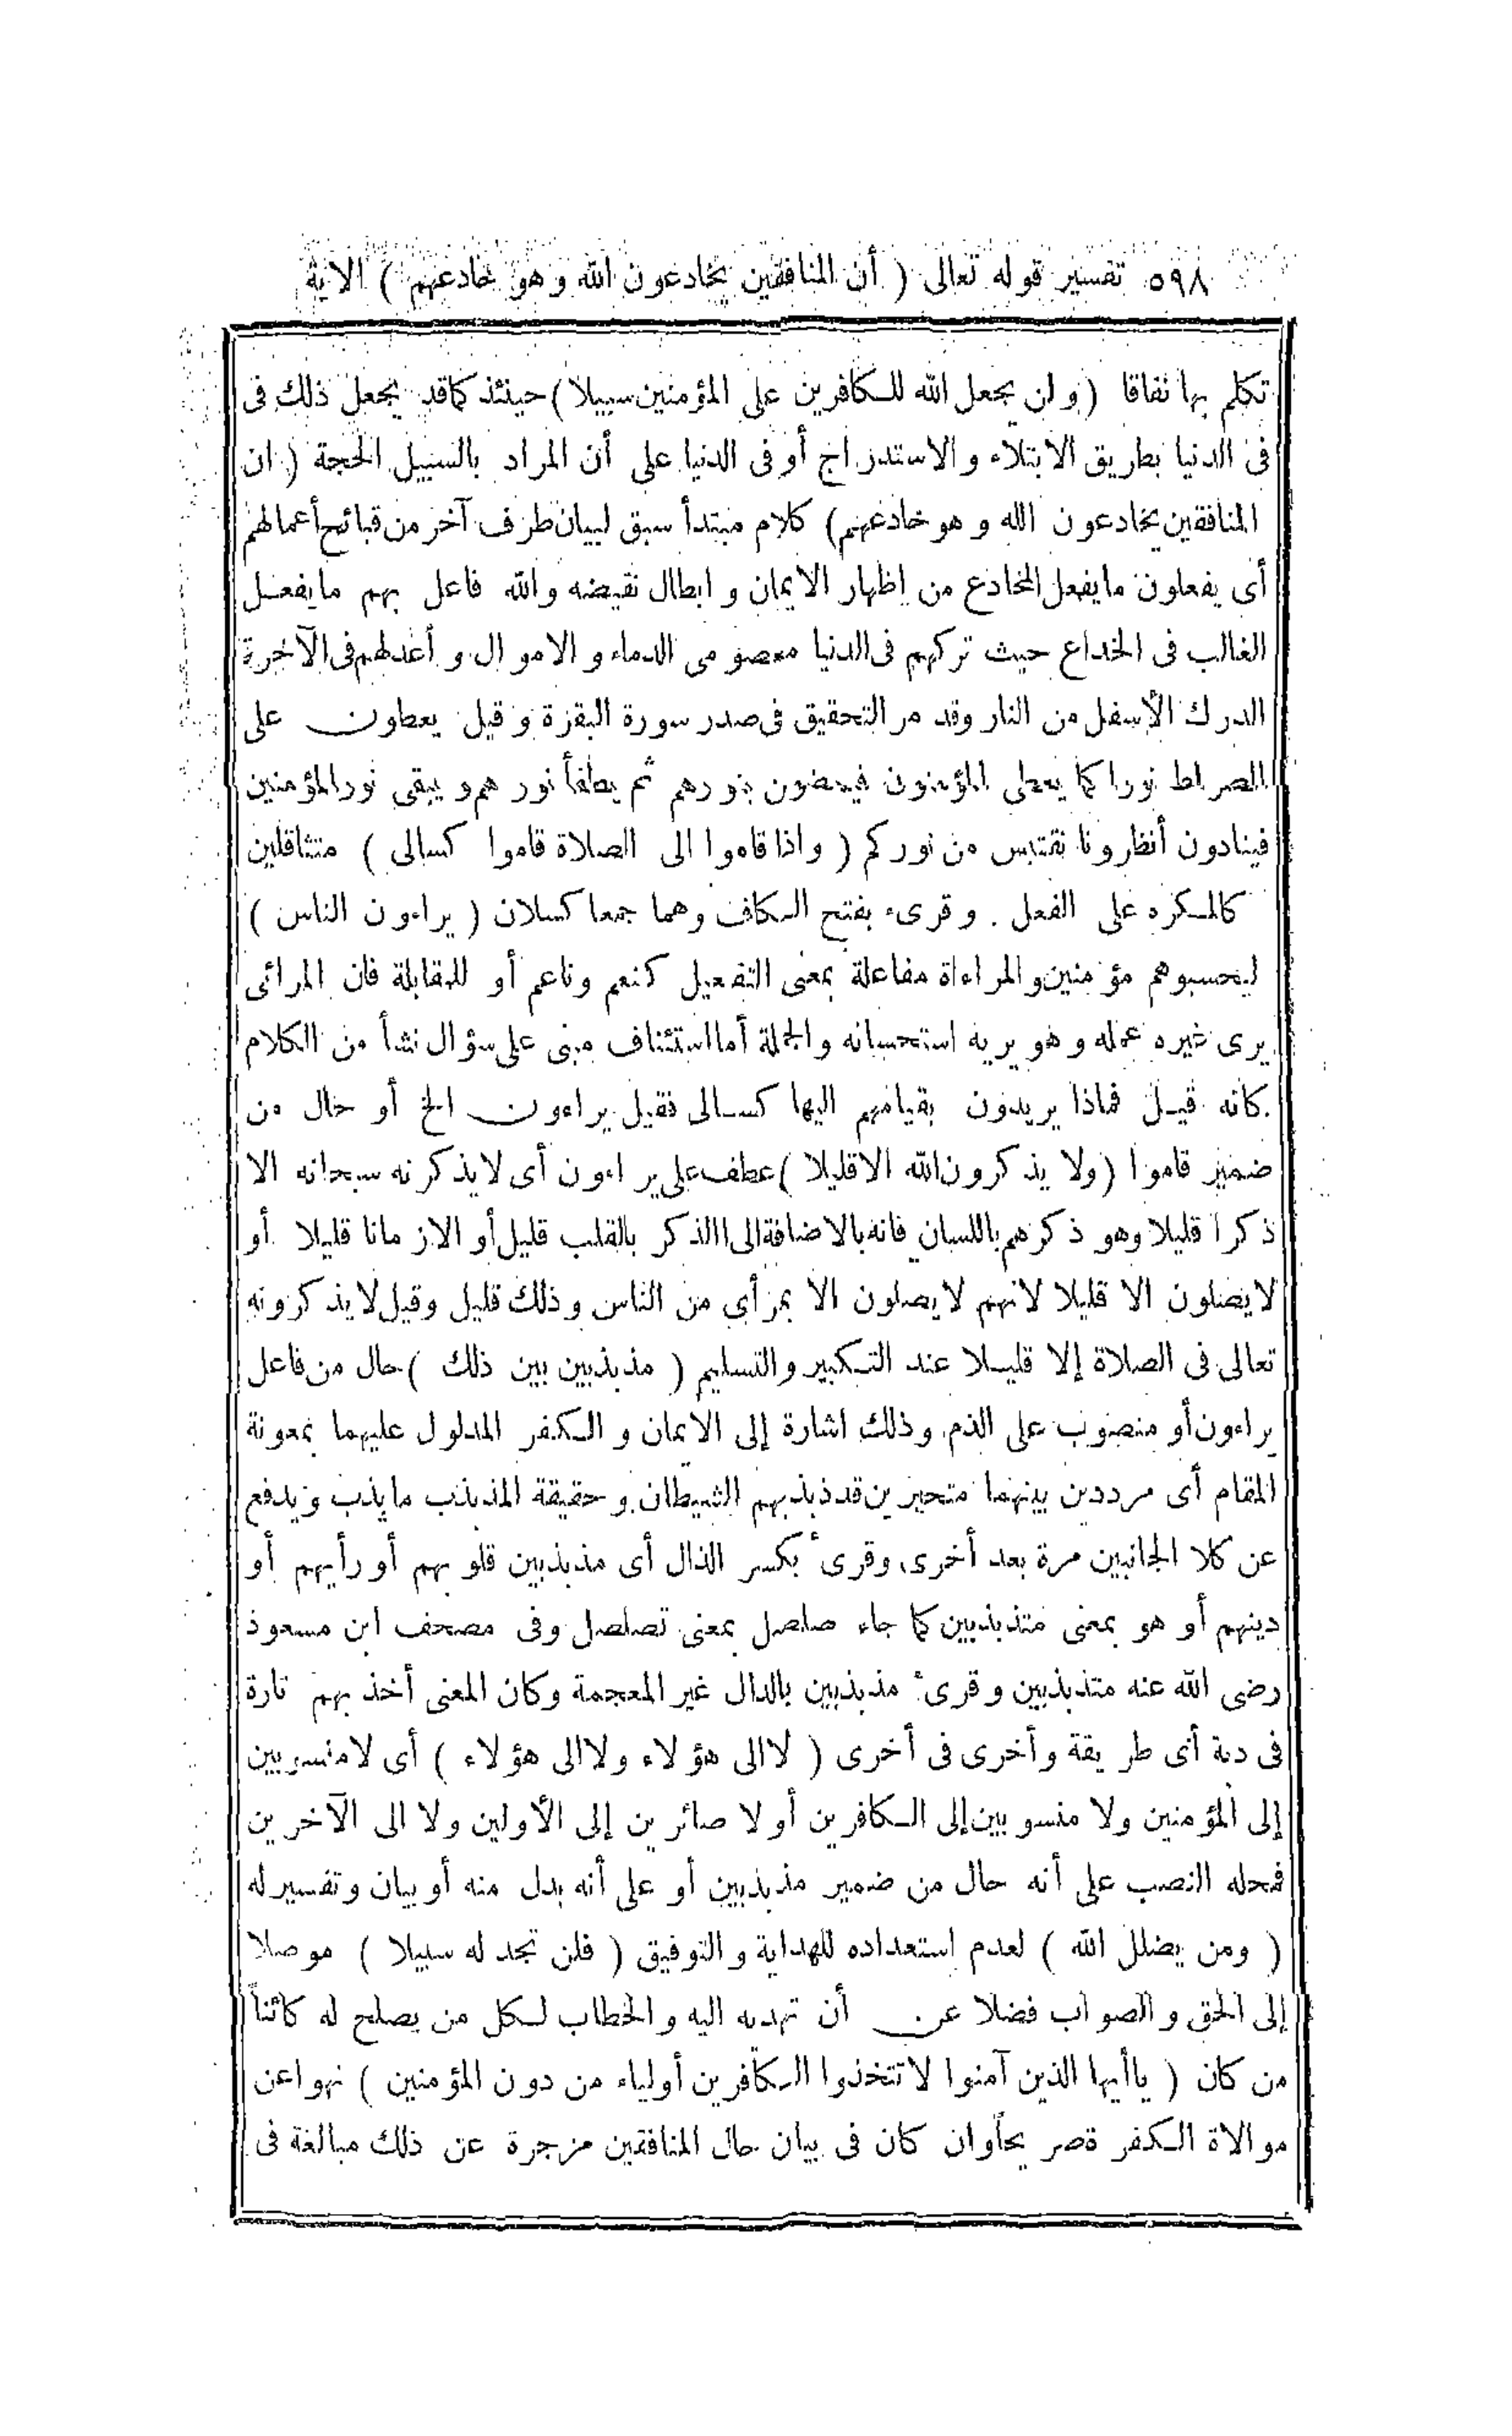 ٥٩٨ تفسير قوله تعالى ( أن المنافقين يخادعون الله وهو خادعهم ) الاية
تكلم بها نفاقا (ولن يجعل الله للكافرين على المؤمنين سبيلا) حينئذ كماقد يجعل ذلك فى
فى الدنيا بطريق الابتلاء والاستدراج أو فى الدنيا على أن المراد بالسبيل الحجة (ان
المنافقين يخادعون الله وهو خادعهم) كلام مبتدأ سبق لبيان طرف آخر من قبائح أعمالهم
أى يفعلون مايفعل المخادع من إظهار الايمان وابطال نقيضه والله فاعل بهم مايفعل
الغالب فى الخداع حيث تركهم فى الدنيا معصومى الدماء والاموال وأعدلهم فى الآخرة
الدرك الأسفل من النار وقد مر التحقيق فى صدر سورة البقرة وقيل يعطون على
الصراط نورا كما يعطى المؤمنون فيمضون بنورهم ثم يطفأ نورهم ويبقى نور المؤمنين
فينادون أنظرونا نقتبس من نوركم ( واذا قاموا الى الصلاة قاموا كسالى ) متثاقلين
كالمكره على الفعل . وقرىء بفتح الكاف وهما جمعا كسلان ( يراءون الناس )
ليحسبوهم مؤمنين والمراءاة مفاعلة بمعنى التفعيل كنعم وناعم أو للمقابلة فان المرائى
يرى غيره عمله وهو يريه استحسانه والجملة أما استئناف مبنى على سؤال نشأ من الكلام
كانه قيل فماذا يريدون بقيامهم اليها كسالى فقيل يراءون الخ أو حال من
ضمير قاموا (ولا يذكرون الله الا قليلا) عطف على يراءون أى لايذكرنه سبحانه الا
ذكرا قليلا وهو ذكرهم باللسان فانه بالاضافة الى االذكر بالقلب قليل أو الا زمانا قليلا أو
لا يصلون الا قليلا لانهم لايصلون الا بمرأى من الناس وذلك قليل وقيل لايذكرونه
تعالى فى الصلاة إلا قليلا عند التكبير والتسليم ( مذبذبين بين ذلك ) حال من فاعل
يراءون أو منصوب على الذم وذلك اشارة إلى الايمان والكفر المدلول عليهما بمعونة
المقام أى مرددين بينهما متحيرين قد ذبذبهم الشيطان وحقيقة المذبذب مايذب ويدفع
عن كلا الجانبين مرة بعد أخرى وقرىء بكسر الذال أى مذبذبين قلوبهم أو رأيهم أو
دينهم أو هو بمعنى متذبذبين كما جاء صلصل بمعنى تصلصل وفى مصحف ابن مسعود
رضى الله عنه متذبذبين وقرىء مذبذبين بالدال غير المعجمة وكان المعنى أخذ بهم تارة
فى دبة أى طريقة وأخرى فى أخرى ( لا الى هؤلاء ولا الى هؤلاء ) أى لا منسوبين
إلى المؤمنين ولا منسوبين إلى الكافرين أو لا صائرين إلى الأولين ولا الى الآخرين
فمحله النصب على أنه حال من ضمير مذبذبين أو على أنه بدل منه أو بيان وتفسير له
( ومن يضلل الله ) لعدم استعداده للهداية والتوفيق ( فلن تجد له سبيلا ) موصلا
إلى الحق والصواب فضلا عن أن تهديه اليه والخطاب لكل من يصلح له كائناً
من كان ( ياأيها الذين آمنوا لا تتخذوا الكافرين أولياء من دون المؤمنين ) نهوا عن
موالاة الكفر ةصريحاً وان كان فى بيان حال المنافقين مزجرة عن ذلك مبالغة فى